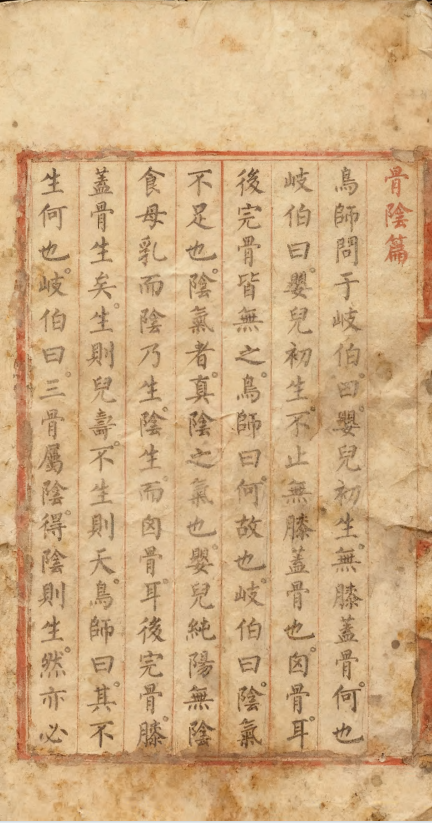 骨陰篇
鳥師問于岐伯曰嬰兒初生無膝蓋骨何也
岐伯曰嬰兒初生不止無膝蓋骨也囟骨耳
後完骨皆無之鳥師曰何故也岐伯曰陰氣
不足也陰氣者真陰之氣也嬰兒純陽無陰
食母乳而陰乃生陰生而囟骨耳後完骨膝
蓋骨生矣生則兒壽不生則夭鳥師曰其不
生何也岐伯曰三骨屬陰得陰則生然亦必